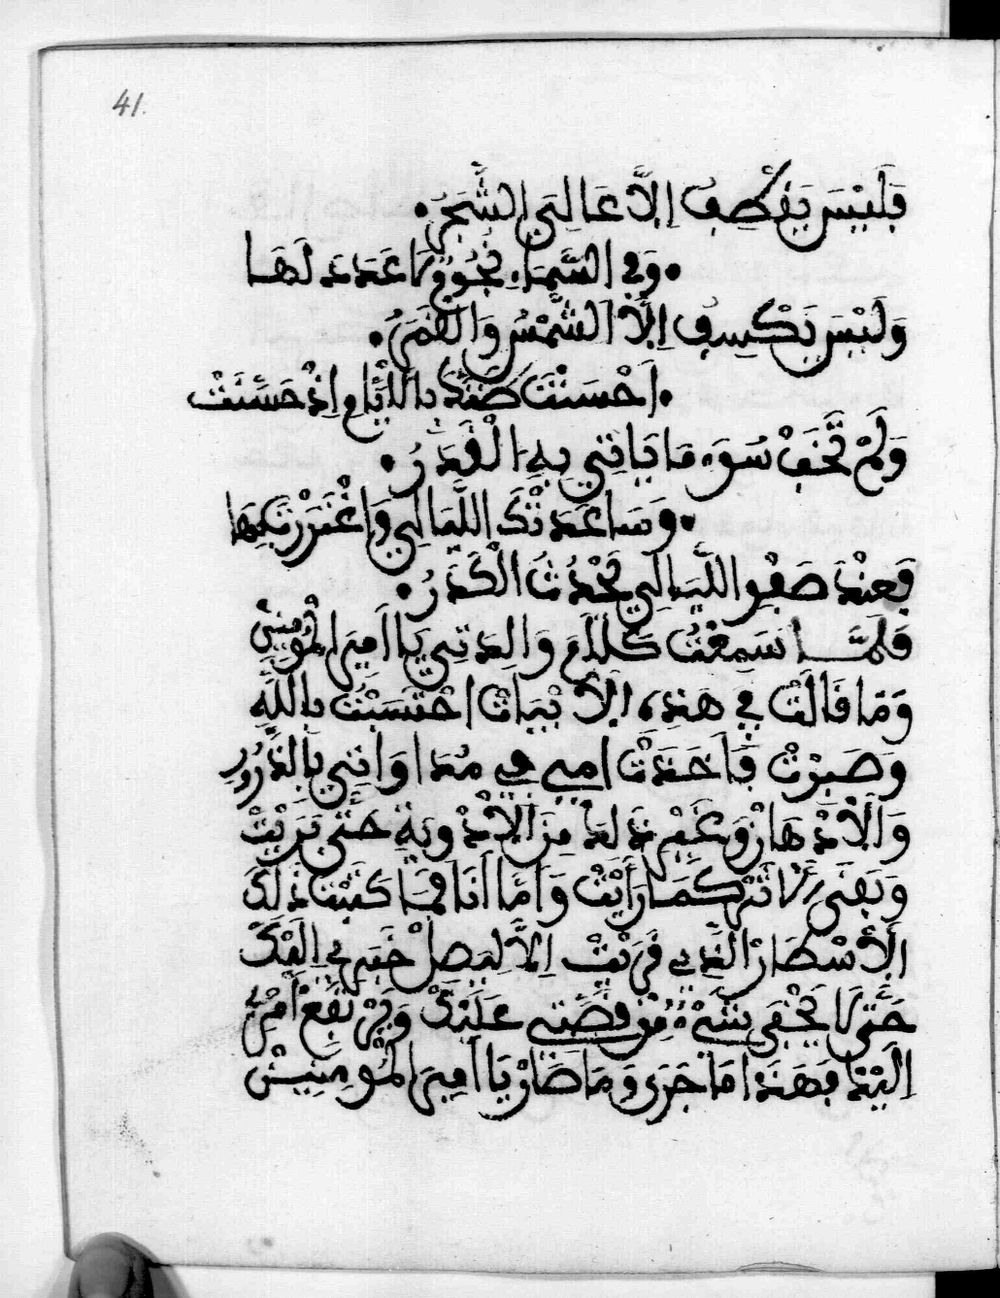 41.
فَلَيْسَ يَقْطِفُ إِلَّا عَالِيَ الشَّجَرُ.
.وَفِي السَّمَاءِ نُجُومٌ لَا عَدَدَ لَهَا
وَلَيْسَ يَكْسِفُ إِلَّا الشَّمْسُ وَالْقَمَرُ.
.أَحْسَنْتَ ضَنَّكَ بِالْأَيَّامِ إِذْ حَسُنَتْ
وَلَمْ تَخَفْ سُوَءَ مَا يَاتِي بِهِ الْقَدَرُ.
.وَسَاعَدَتْكَ اللَّيَالِي وَاغْتَرَرْتَ بِهَا
فَعِنْدَ صَفْوِ اللَّيَالِي يَحْدُثُ الْكَدَرُ.
فَلَمَّا سَمِعْتُ كَلَامَ وَالِدَتِي يَا أَمِيرَ الْمُومِنِينْ
وَمَا قَالَتْ فِي هَذِهِ الْأَبْيَاتْ احْتَسَبْتُ بِاللَّهِ
وَصَبَرْتْ فَأَخَذَتْ امِّي فِي مُدَاوَاتِي بِالذَّرُورِ
وَالْأَدْهَانْ وَغَيْرَ ذَلِكَ مِنَ الْأَدْوِيَةِ حَتَّى بَرَيْتْ
وَبَقَى الْأَثَرْ كَمَا رَأَيْتْ وَأَمَّا أَنَا فَمَا كَتَبْتُ ذَلِكَ
الْأَسْطَارْ الَّذِي قَرَيْتْ إِلَّا لِيَصِلْ خَبَرِي إِلَيْكْ
حَتَّى لَا يَخْفَى شَيْءٌ مِنْ قِصَّتِي عَلَيْكْ وَيَرْتَفِعْ أَمْرِي
إِلَيْكْ فَهَذَا مَا جَرَى وَمَا صَارْ يَا أَمِيرَ الْمُومِنِينْ